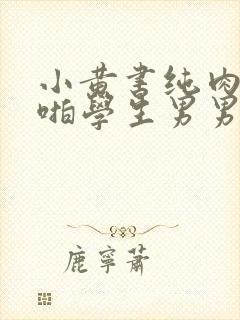 小黃書纯肉
啪學生男男
鹿寧蕭